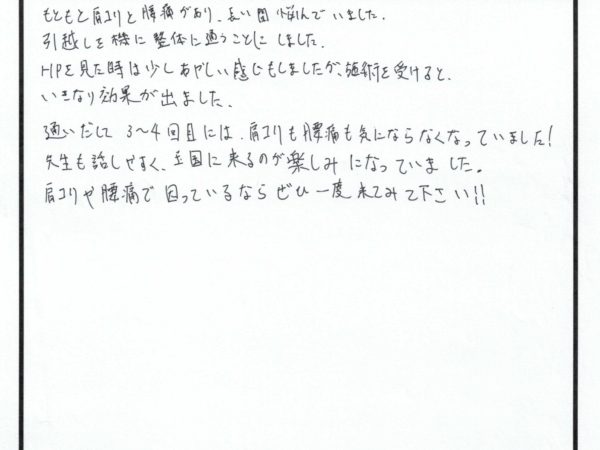 もともと肩コリと腰痛があり、長い間悩んでいました。
引越しを機に整体に通うことにしました。
HPを見た時は少しあやしい感じもしましたが、施術を受けると、
いきなり効果が出ました。
通いだして3〜4回目には、肩コリも腰痛も気にならなくなっていました！
先生も話しやすく、毎回に来るのが楽しみになっていました。
肩コリや腰痛で困っているならぜひ一度来てみて下さい!!